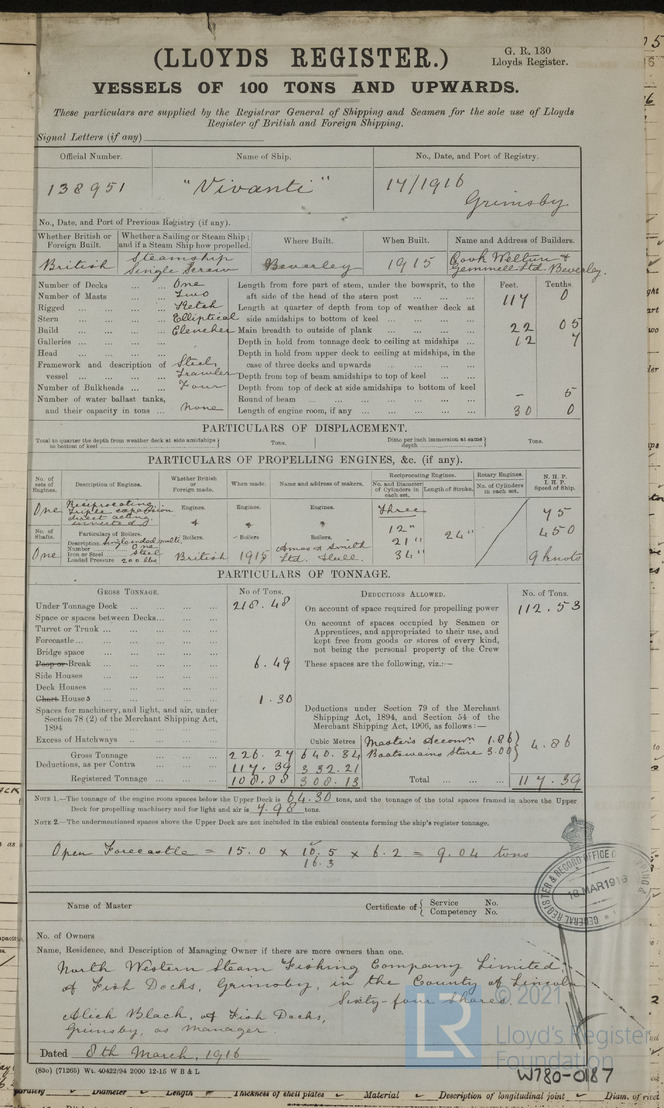 (LLOYDS REGISTER.)
G. R. 130
Lloyds Register.
VESSELS OF 100 TONS AND UPWARDS.
These particulars are supplied by the Registrar General of Shipping and Seamen for the sole use of Lloyds
Register of British and Foreign Shipping.
Signal Letters (if any)
Official Number. Name of Ship. No., Date, and Port of Registry.
138951 "Vivanti" 14/1916
Grimsby
No., Date, and Port of Previous Registry (if any).
Whether British or Foreign Built. Whether a Sailing or Steam Ship; and if a Steam Ship how propelled. Where Built. When Built. Name and Address of Builders.
British Steamship Single Screw Beverley 1915 Cook Welton & Gemmell Ltd. Beverley.
Feet. Tenths.
Number of Decks One Length from fore part of stem, under the bowsprit, to the
Number of Masts Two aft side of the head of the stern post 117 0
Rigged Ketch Length at quarter of depth from top of weather deck at
Stern Elliptical side amidships to bottom of keel
Build Clencher Main breadth to outside of plank 22 05
Galleries Depth in hold from tonnage deck to ceiling at midships 12 7
Head Depth in hold from upper deck to ceiling at midships, in the
Framework and description of Steel case of three decks and upwards
vessel Trawler Depth from top of beam amidships to top of keel
Number of Bulkheads Four Depth from top of deck at side amidships to bottom of keel
Number of water ballast tanks, Round of beam - 5
and their capacity in tons None Length of engine room, if any 30 0
PARTICULARS OF DISPLACEMENT.
Total to quarter the depth from weather deck at side amidships to bottom of keel Tons. Ditto per inch immersion at same depth Tons.
PARTICULARS OF PROPELLING ENGINES, &c. (if any).
No. of sets of Engines. Description of Engines. Whether British or Foreign made. When made. Name and address of makers. Reciprocating Engines. Rotary Engines. N. H. P. I. H. P. Speed of Ship.
No. and Diameter of Cylinders in each set. Length of Stroke. No. of Cylinders in each set.
One Reciprocating triple expansion direct acting inverted Engines. Engines. Engines. Three 75
No. of Shafts. Particulars of Boilers. Boilers. Boilers. Boilers. 12" 450
Description Single ended multi. 21" 24"
Number One
One Iron or Steel Steel British 1915 Amos & Smith Ltd. Hull. 34" 9 knots
Loaded Pressure 200 lbs
PARTICULARS OF TONNAGE.
Gross Tonnage. No of Tons. Deductions Allowed. No. of Tons.
Under Tonnage Deck 218.48 On account of space required for propelling power 112.53
Space or spaces between Decks On account of spaces occupied by Seamen or
Turret or Trunk Apprentices, and appropriated to their use, and
Forecastle kept free from goods or stores of every kind,
Bridge space not being the personal property of the Crew
Poop or Break 6.49 These spaces are the following, viz.:—
Side Houses
Deck Houses
Chart Houses 1.30
Spaces for machinery, and light, and air, under Deductions under Section 79 of the Merchant
Section 78 (2) of the Merchant Shipping Act, Shipping Act, 1894, and Section 54 of the
1894 Merchant Shipping Act, 1906, as follows:—
Excess of Hatchways Cubic Metres Master's Accomn 1.86
Gross Tonnage 226.27 640.34 Boatswains Store 3.00 4.86
Deductions, as per Contra 117.39 332.21
Registered Tonnage 108.88 308.13 Total 117.39
Note 1.—The tonnage of the engine room spaces below the Upper Deck is 64.30 tons, and the tonnage of the total spaces framed in above the Upper
Deck for propelling machinery and for light and air is 7.98 tons.
Note 2.—The undermentioned spaces above the Upper Deck are not included in the cubical contents forming the ship's register tonnage.
Open Forecastle = 15.0 x 10.5 x 6.2 = 9.04 tons
16.3
GENERAL REGISTER & RECORD OFFICE OF
18 MAR 1916
Name of Master Certificate of Service No.
Competency No.
No. of Owners
Name, Residence, and Description of Managing Owner if there are more owners than one.
North Western Steam Fishing Company Limited,
of Fish Docks, Grimsby, in the County of Lincoln
Sixty-four Shares
Alick Black, of Fish Docks,
Grimsby, as manager.
Dated 8th March, 1916
(83o) (71265) Wt. 40422/94 2000 12-15 W B & L
© 2021
LR
Lloyd's Register
Foundation
W780-0187
Diameter Length Thickness of shell plates Material Description of longitudinal joint Diam. of rivet